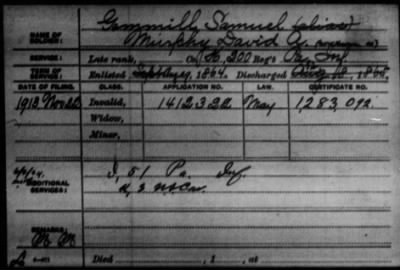 NAME OF SOLDIER: Gemmill Samuel (alias)
Murphy David A.
SERVICE: Late rank, Co. H, 200 Reg't Pa. Inf.
TERM OF SERVICE: Enlisted , 1864. Discharged , 1865.
DATE OF FILING. CLASS. APPLICATION NO. LAW. CERTIFICATE NO.
1913 Nov Invalid, 1412322 May 1,283,092.
Widow,
Minor,
ADDITIONAL SERVICES: I, 51 Pa. Inf.
REMARKS:
Died , 1 , at